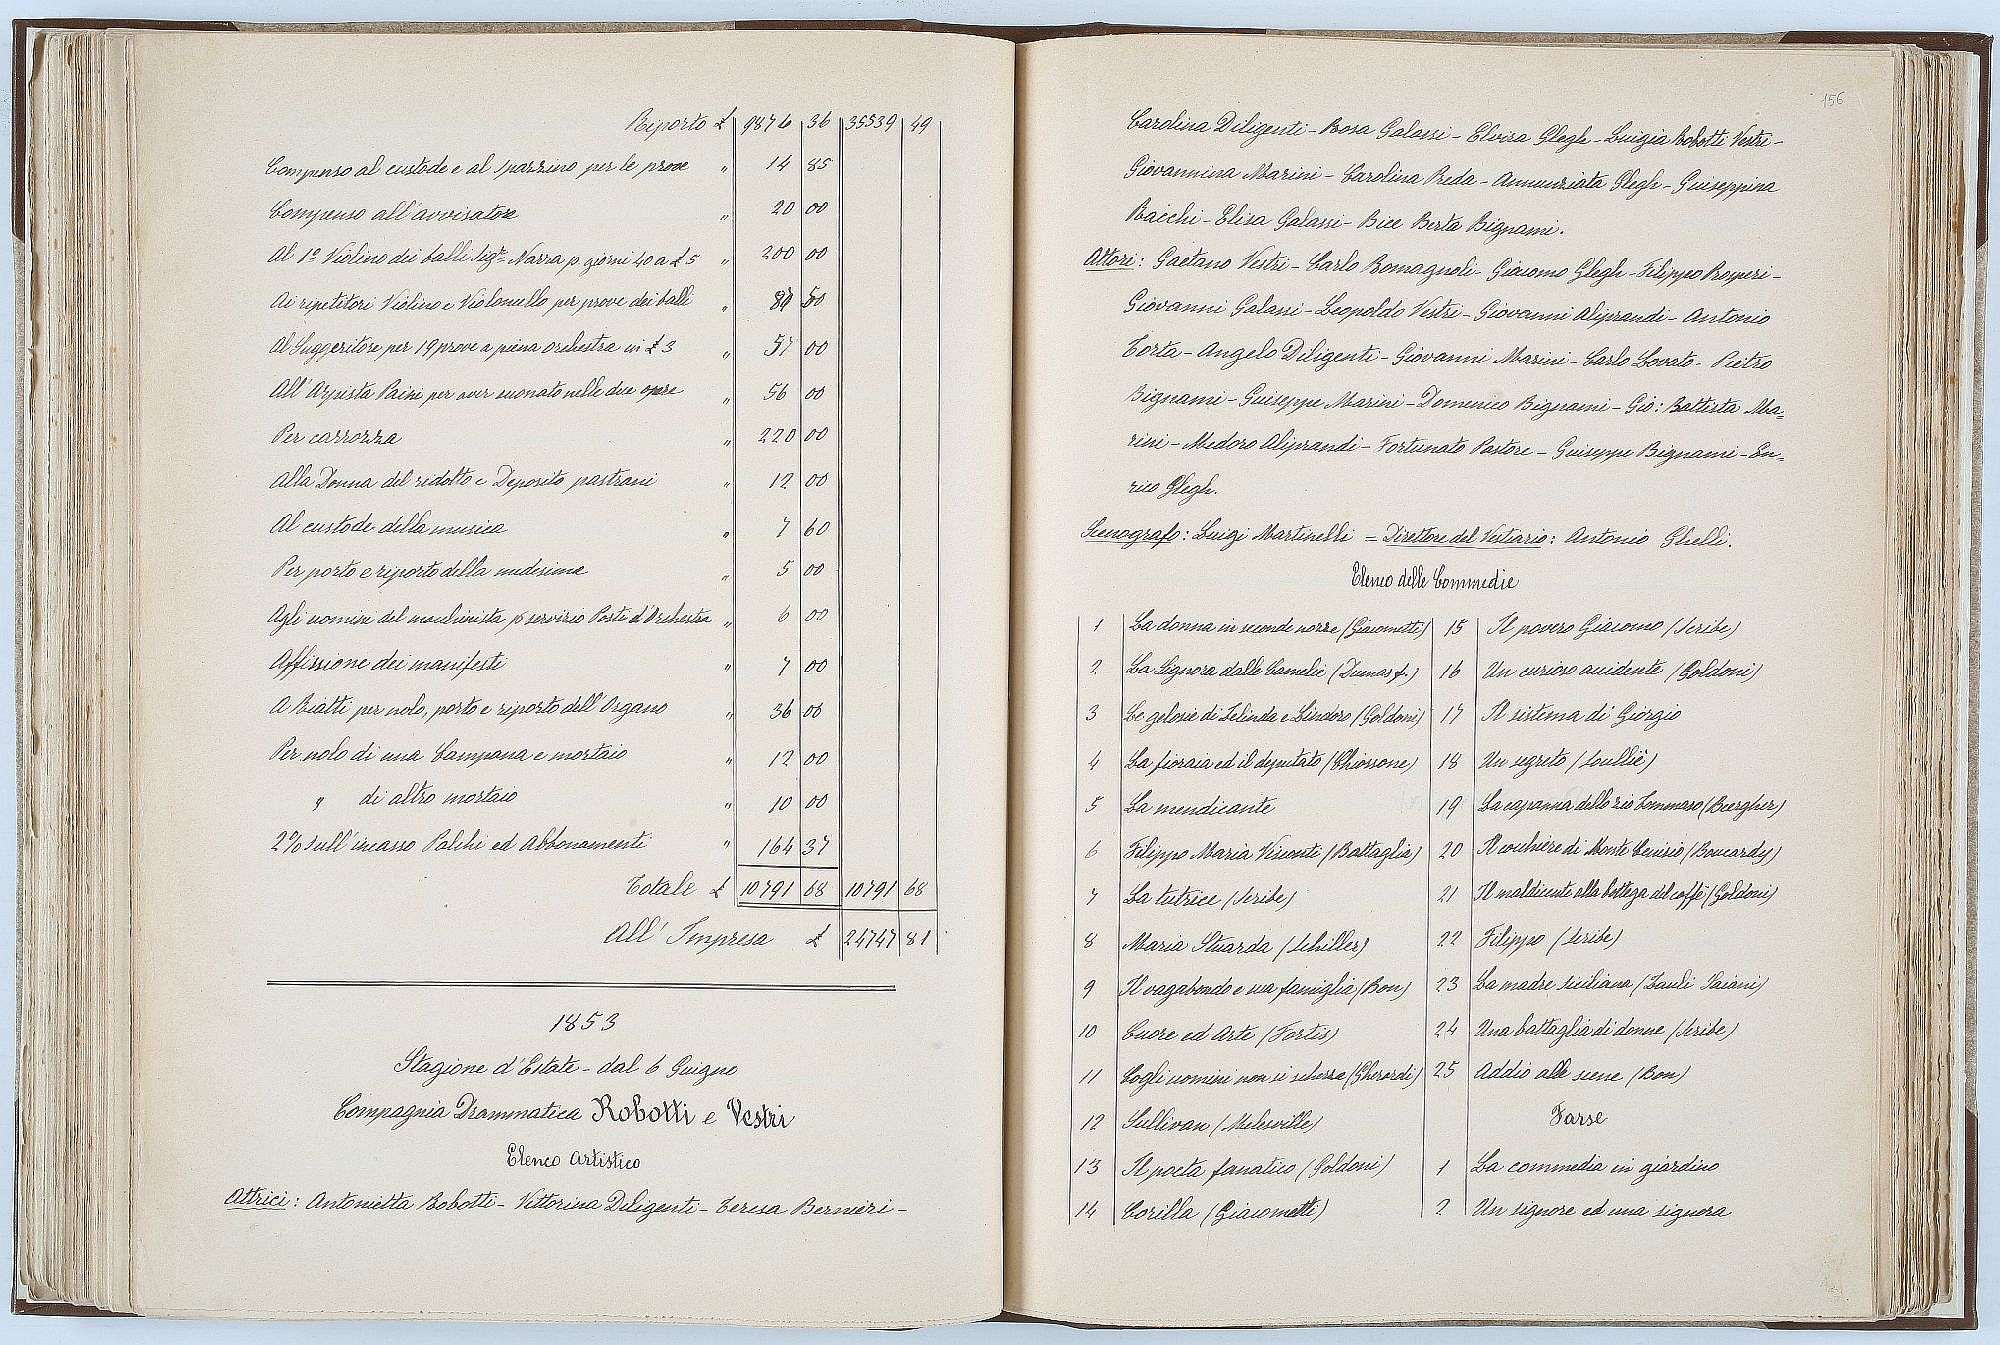 Riporto £ 9876 36 35539 49
Compenso al custode e al spazzino per le prove " 14 85
Compenso all'avvisatore " 20 00
Al 1º Violino dei balli Sigr Narra p giorni 40 a £ 5 " 200 00
Ai ripetitori Violino e Violoncello per prove dei balli " 87 50
Al Suggeritore per 19 prove a piena orchestra in £ 3 " 57 00
All'Arpista Paini per aver suonato nelle due opere " 56 00
Per carrozza " 220 00
Alla Donna del ridotto e Deposito pastrani " 12 00
Al custode della musica " 7 60
Per porto e riporto della medesima " 5 00
Agli uomini del macchinista p servizio Posti d'Orchestra " 6 00
Affissione dei manifesti " 7 00
A Riatti per nolo, porto e riporto dell'Organo " 36 00
Per nolo di una Campana e mortaio " 12 00
" di altro mortaio " 10 00
2% sull'incasso Palchi ed Abbonamenti " 164 37
Totale £ 10791 68 10791 68
All'Impresa £ 24747 81
1853
Stagione d'Estate - dal 6 Guigno
Compagnia Drammatica Robotti e Vestri
Elenco Artistico
Attrici: Antonietta Robotti - Vittorina Diligenti - Teresa Bernieri -
156
Carolina Diligenti - Rosa Galassi - Elvira Glegh - Luigia Robotti Vestri -
Giovannina Marini - Carolina Reda - Annunziata Glegh - Guiseppina
Bacchi - Elisa Galassi - Bice Berta Bignami.
Attori: Gaetano Vestri - Carlo Romagnoli - Giacomo Glegh - Filippo Properi -
Giovanni Galassi - Leopoldo Vestri - Giovanni Aliprandi - Antonio
Torta - Angelo Diligenti - Giovanni Marini - Carlo Lovato - Pietro
Bignami - Guiseppe Marini - Domenico Bignami - Gio: Battista Ma=
rini - Medoro Aliprandi - Fortunato Pastore - Guiseppe Bignami - En=
rico Glegh.
Scenografo: Luigi Martinelli = Direttore del Vestiario: Antonio Ghelli.
Elenco delle Commedie
1 La donna in seconde nozze (Giacometti)
2 La Signora dalle Camelie (Dumas f.)
3 Le gelosie di Zelinda e Lindoro (Goldoni)
4 La fioraia ed il deputato (Chiossone)
5 La mendicante
6 Filippo Maria Visconti (Battaglia)
7 La tutrice (Scribe)
8 Maria Stuarda (Schiller)
9 Il vagabondo e sua famiglia (Bon)
10 Cuore ed Arte (Fortis)
11 Cogli uomini non si scherza (Gherardi)
12 Sullivan (Melesville)
13 Il poeta fanatico (Goldoni)
14 Corilla (Giacometti)
15 Il povero Giacomo (Scribe)
16 Un curioso accidente (Goldoni)
17 Il sistema di Giorgio
18 Un segreto (Soulliè)
19 La capanna dello zio Tommaso (Beergher)
20 Il cocchiere di Monte Cenisio (Boucardy)
21 Il maldicente alla bottega del caffè (Goldoni)
22 Filippo (Scribe)
23 La madre siciliana (Zauli Saiani)
24 Una battaglia di donne (Scribe)
25 Addio alle scene (Bon)
Farse
1 La commedia in giardino
2 Un signore ed una signora